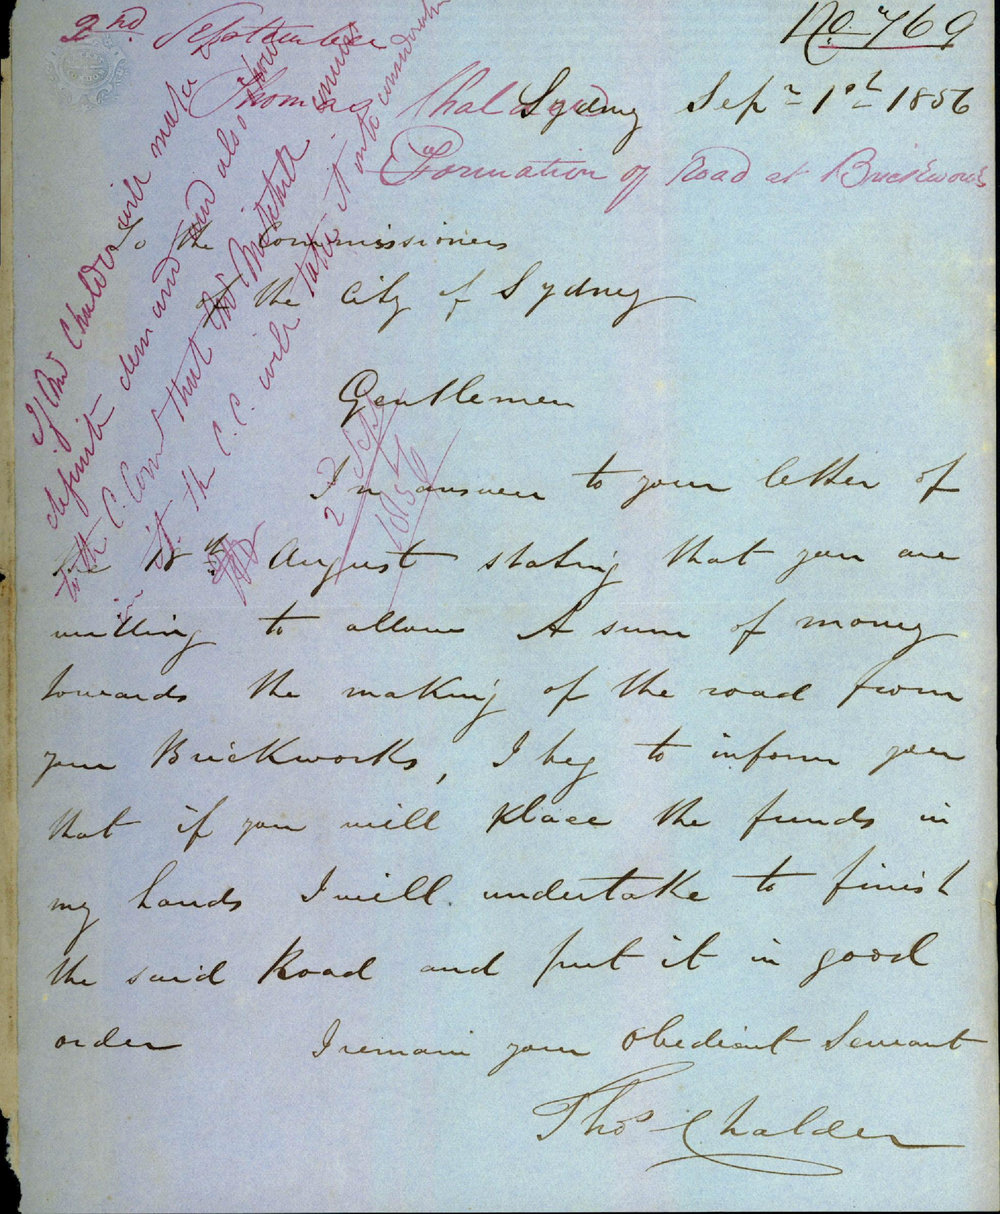 No. 769
2nd September
Thomas Chalder
Sydney Sepr 1st 1856
Formation of Road at Brickworks
To the Commissioners
of the City of Sydney
Gentlemen
In answer to your letter of
the 18th August stating that you are
willing to allow A sum of money
towards the making of the road from
your Brickworks, I beg to inform you
that if you will place the funds in
my hands I will undertake to finish
the said Road and put it in good
order I remain your obedient Servant
Thos Chalder
If Mr Chalder will make a
definite demand and also show
to the C. Com that the
it the C.C. will take it into consideration
2 Sept
1856